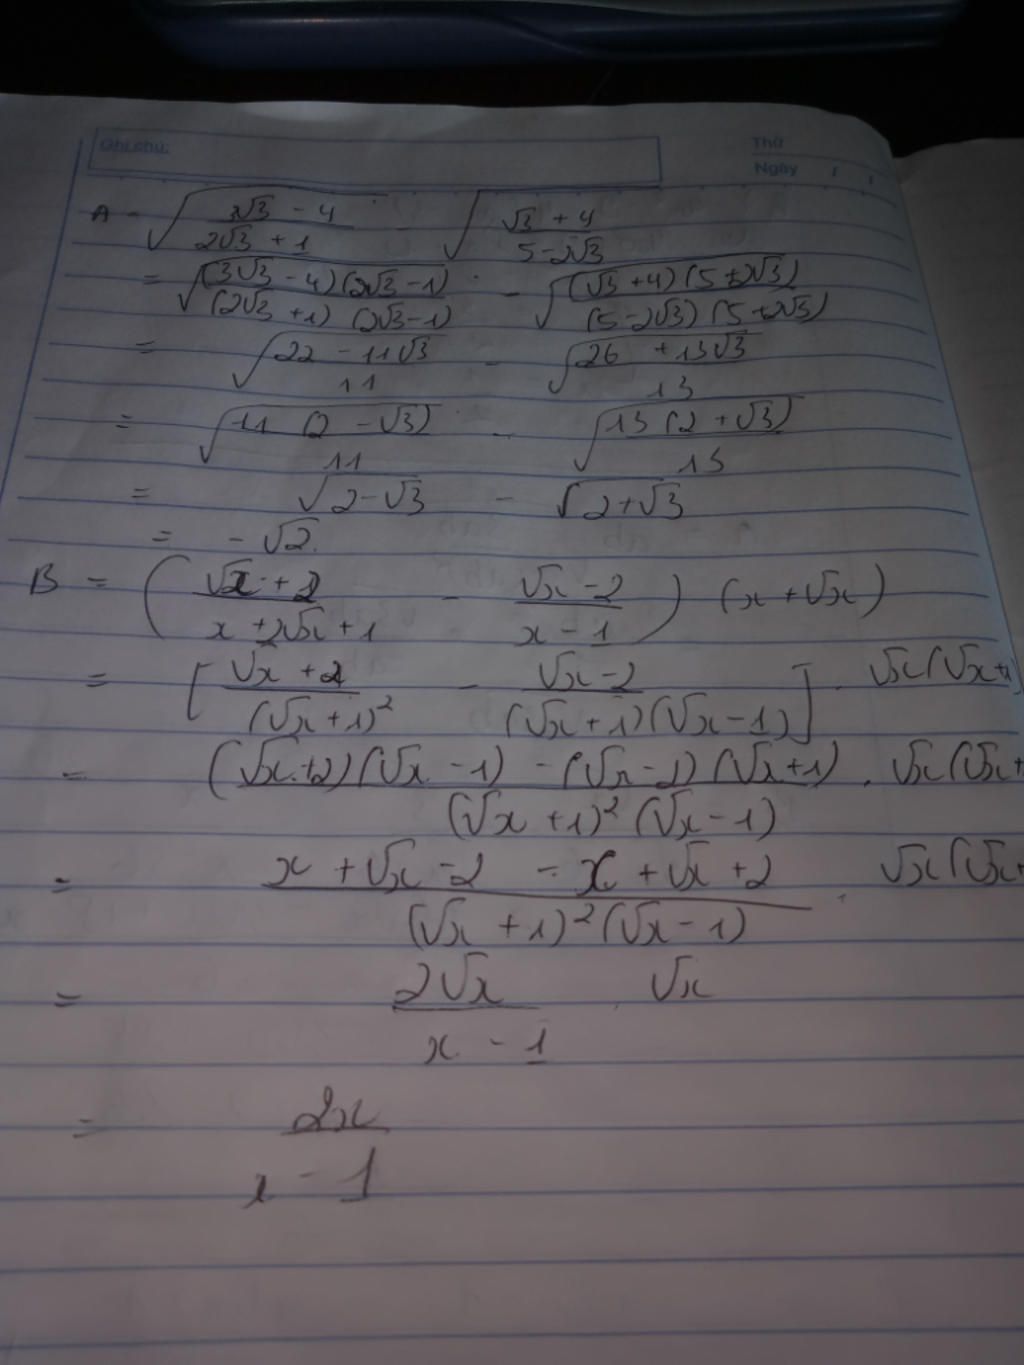 Ghi chú:
Thứ
Ngày / /
A = √((3√3 - 4)/(2√3 + 1)) - √((√3 + 4)/(5 - 2√3))
= √((3√3 - 4)(2√3 - 1)/(2√3 + 1)(2√3 - 1)) - √((√3 + 4)(5 + 2√3)/(5 - 2√3)(5 + 2√3))
= √((22 - 11√3)/11) - √((26 + 13√3)/13)
= √(11(2 - √3)/11) - √(13(2 + √3)/13)
= √(2 - √3) - √(2 + √3)
= - √2.
B = ((√x + 2)/(x + 2√x + 1) - (√x - 2)/(x - 1)) (x + √x)
= [(√x + 2)/(√x + 1)² - (√x - 2)/(√x + 1)(√x - 1)] . √x(√x + 1)
= ((√x + 2)(√x - 1) - (√x - 2)(√x + 1))/((√x + 1)²(√x - 1)) . √x(√x +
= (x + √x - 2 - x + √x + 2)/((√x + 1)²(√x - 1)) . √x(√x
= 2√x/(x - 1) . √x
= 2x/(x - 1)